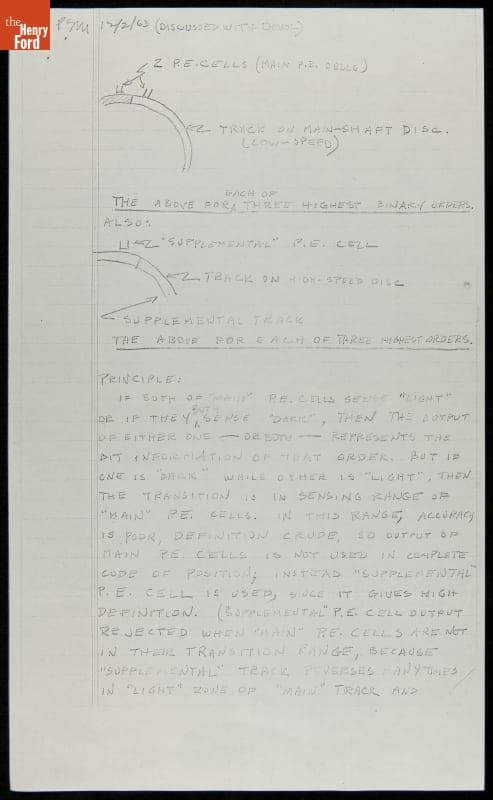 the
Henry
Ford
12/2/63 (DISCUSSED WITH DEVOL)
2 P.E. CELLS (MAIN P.E. CELLS)
TRACK ON MAIN-SHAFT DISC.
(LOW-SPEED)
EACH OF
THE ABOVE FOR THREE HIGHEST BINARY ORDERS.
ALSO:
"SUPPLEMENTAL" P.E. CELL
TRACK ON HIGH-SPEED DISC
SUPPLEMENTAL TRACK
THE ABOVE FOR EACH OF THREE HIGHEST ORDERS.
PRINCIPLE:
IF BOTH OF "MAIN" P.E. CELLS SENSE "LIGHT"
BOTH
OR IF THEY SENSE "DARK", THEN THE OUTPUT
OF EITHER ONE — OR BOTH — REPRESENTS THE
BIT INFORMATION OF THAT ORDER. BUT IF
ONE IS "DARK" WHILE OTHER IS "LIGHT", THEN
THE TRANSITION IS IN SENSING RANGE OF
"MAIN" P.E. CELLS. IN THIS RANGE, ACCURACY
IS POOR, DEFINITION CRUDE, SO OUTPUT OF
MAIN P.E. CELLS IS NOT USED IN COMPLETE
CODE OF POSITION; INSTEAD "SUPPLEMENTAL"
P.E. CELL IS USED, SINCE IT GIVES HIGH
DEFINITION. (SUPPLEMENTAL" P.E. CELL OUTPUT
REJECTED WHEN "MAIN" P.E. CELLS ARE NOT
IN THEIR TRANSITION RANGE, BECAUSE
"SUPPLEMENTAL" TRACK REVERSES MANY TIMES
IN "LIGHT" ZONE OF "MAIN" TRACK AND